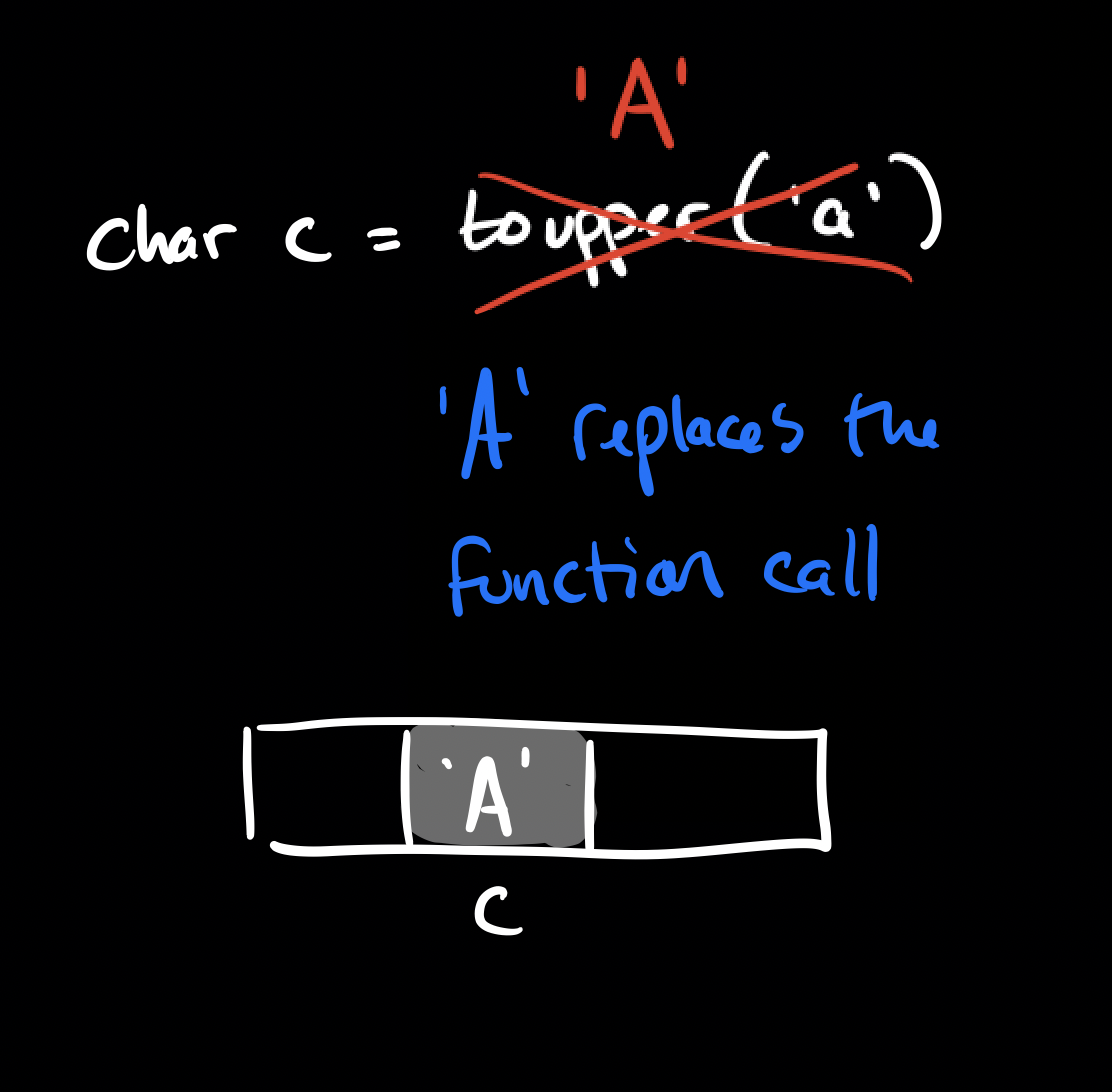 'A'
char c = toupper('a')
'A' replaces the
function call
'A'
c